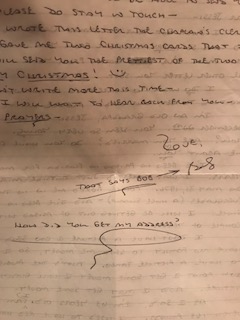 PLEASE DO STAY IN TOUCH—
WROTE THIS LETTER THE CHAPLAIN'S CLERK
GAVE ME TWO CHRISTMAS CARDS THAT I
WILL SEND YOU THE PRETTIEST OF THE TWO
CHRISTMAS! 
WRITE MORE THIS TIME—
I WILL WANT TO HEAR BACK FROM YOU—
PRAYERS—
LOVE,
BOB
THAT SAYS BOB
HOW DID YOU GET MY ADDRESS?